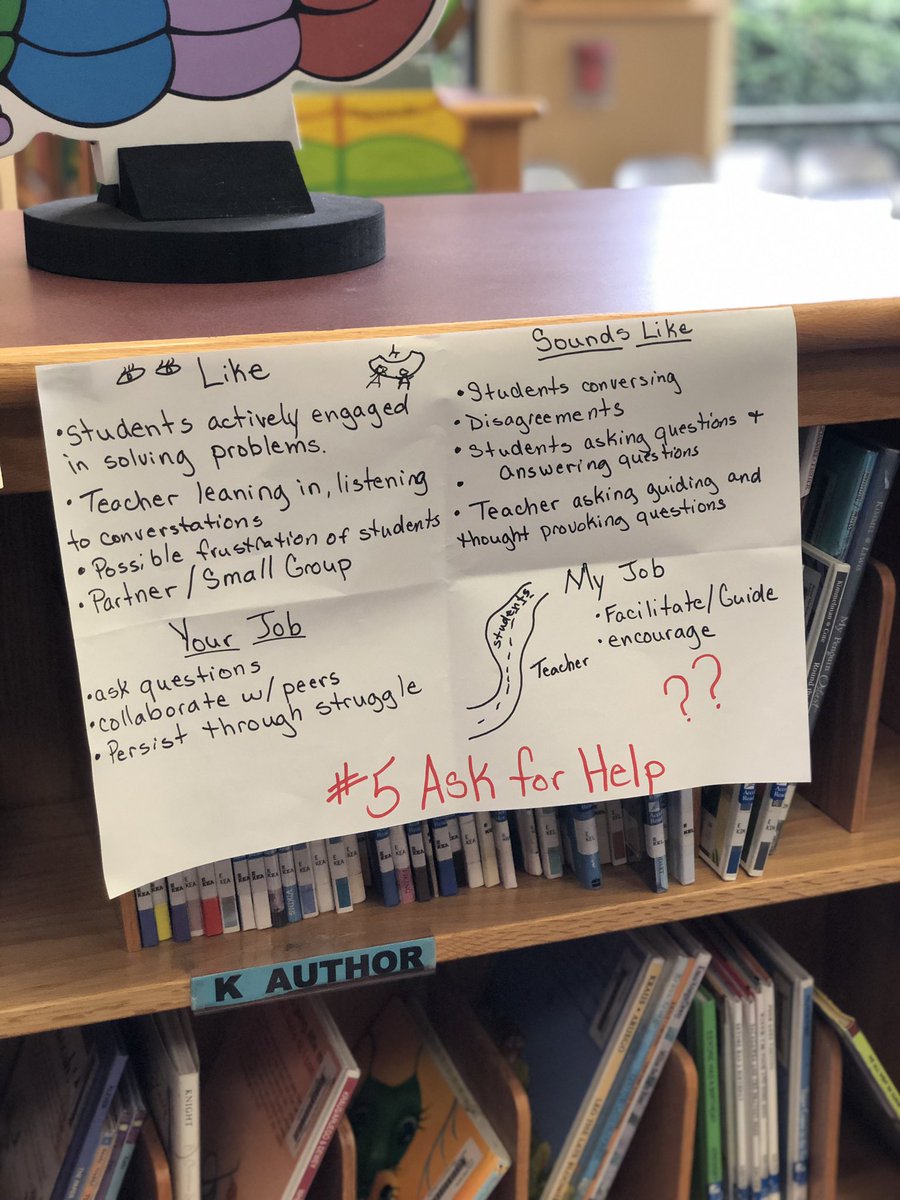 Like
• Students actively engaged
in solving problems.
• Teacher leaning in, listening
to converstations
• Possible frustration of students
• Partner/Small Group
Sounds Like
• Students conversing
• Disagreements
• Students asking questions +
• answering questions
• Teacher asking guiding and
thought provoking questions
Your Job
• ask questions
• collaborate w/ peers
• Persist through struggle
My Job
• Facilitate/Guide
• encourage
students
Teacher
??
#5 Ask for Help
K AUTHOR
KNIGHT